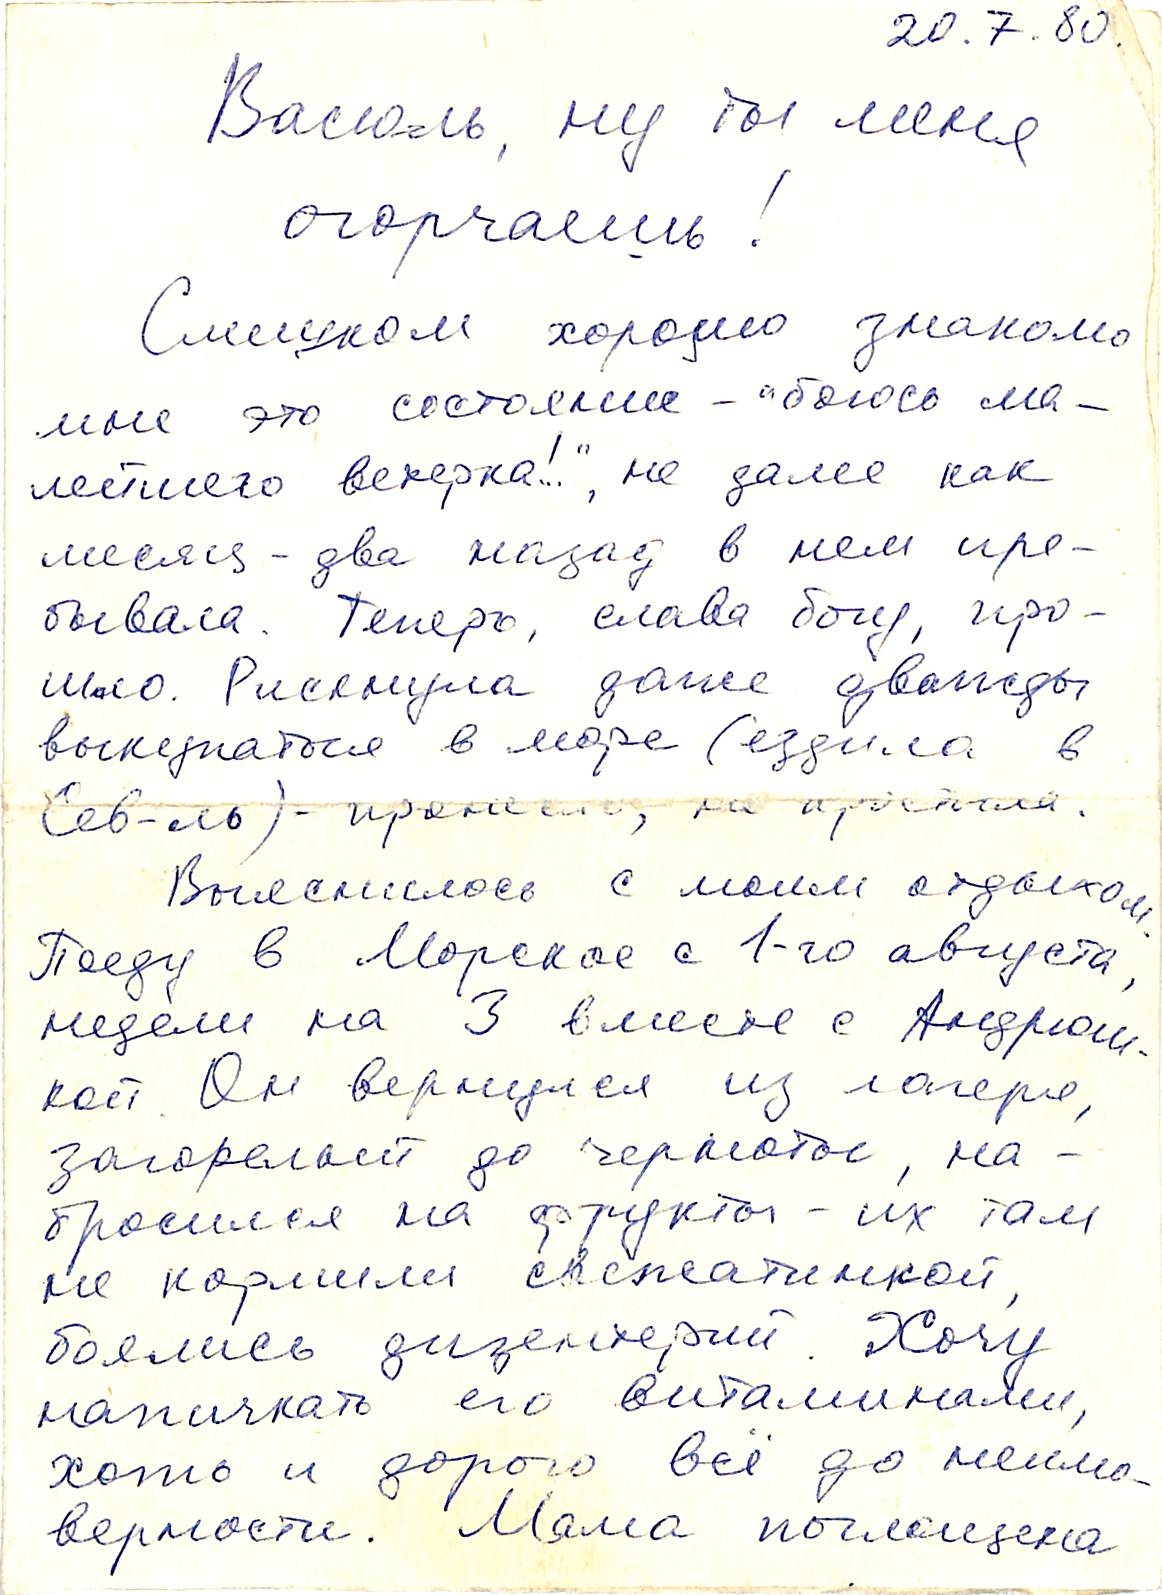 20.7.80.
Васюль, ну ты меня
огорчаешь!
Слишком хорошо знакомо
мне это состояние – "боюсь ма-
лейшего ветерка!..", не далее как
месяц-два назад в нем пре-
бывала. Теперь, слава богу, про-
шло. Рискнула даже дважды
выкупаться в море (ездила в
Сев-ль) – пронесло, не простыла.
Выяснилось с моим отдыхом.
Поеду в Морское с 1-го августа,
недели на 3 вместе с Андрюш-
кой. Он вернулся из лагеря,
загорелый до черноты, на-
бросился на фрукты – их там
не кормили свежатинкой,
боялись дизентерий. Хочу
напичкать его витаминами,
хоть и дорого всё до неимо-
верности. Мама поглощена